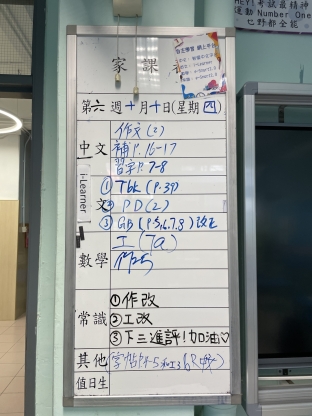 HEY!考試最精神
運動Number One
也野都全能。
家課
第六週十月十日(星期四)
作文(2)
中文
補P.16-17
習字P.7-8
i-Learner
①Tbk (P.37)
文
②PD(2)
③GB (P.5,6,7,8)改正
數學
工(7a)
常識
①作改
②工改
③下三進評!加油♡
其他
值日生